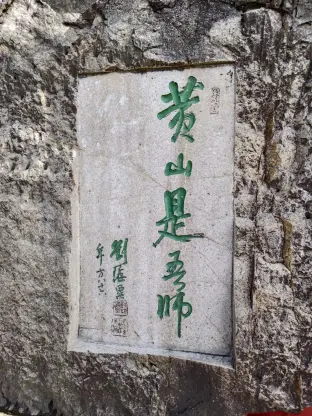 黄山是吾师
劉海粟
年方九六